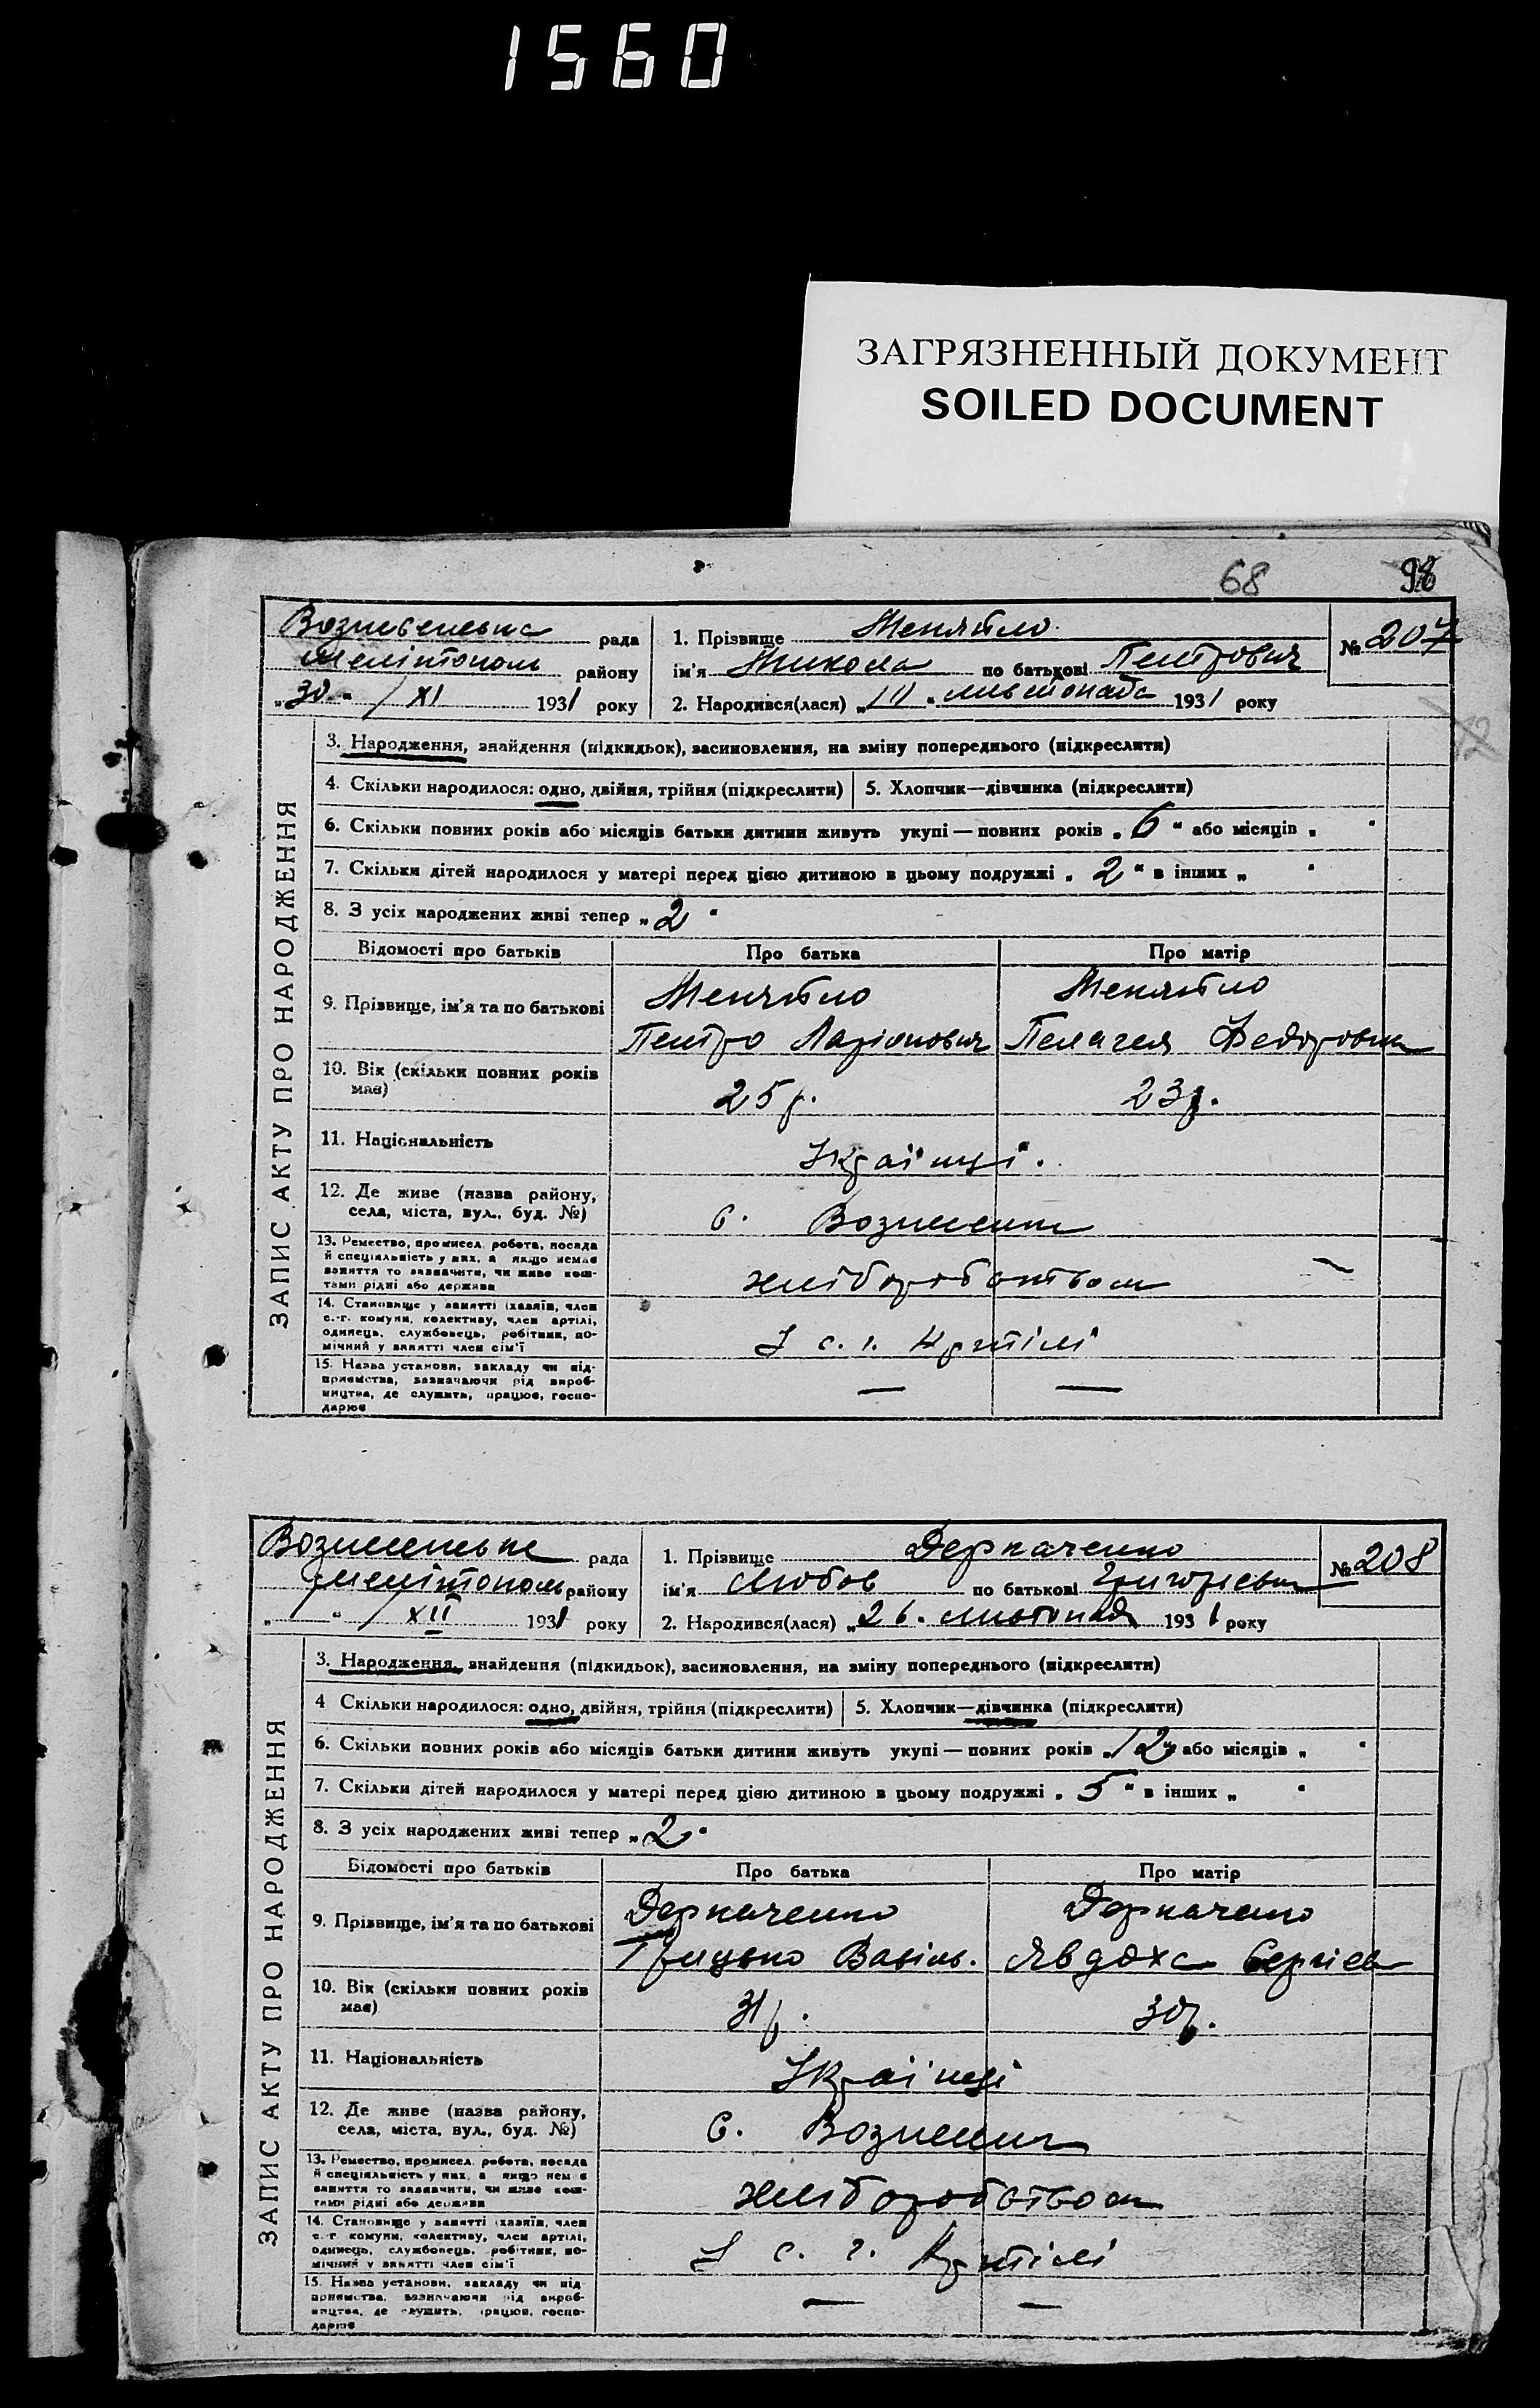 1560
ЗАГРЯЗНЕННЫЙ ДОКУМЕНТ
SOILED DOCUMENT
68 98
ЗАПИС АКТУ ПРО НАРОДЖЕННЯ
рада
району
"30" / XI 1931 року
1. Прізвище Менятло
ім'я Микола по батькові Петрович
2. Народився(лася) " 11 " листопада 1931 року
№ 207
3. Народження, знайдення (підкидьок), засиновлення, на зміну попереднього (підкреслити)
4. Скільки народилося: одно, двійня, трійня (підкреслити) 5. Хлопчик—дівчинка (підкреслити)
6. Скільки повних років або місяців батьки дитини живуть укупі — повних років „ 6 " або місяців „ "
7. Скільки дітей народилося у матері перед цією дитиною в цьому подружжі „ 2 " в інших „ "
8. З усіх народжених живі тепер „ 2 "
Відомості про батьків Про батька Про матір
9. Прізвище, ім'я та по батькові
Менятло Менятло
Петро Ларіонович Пелагея Федоровна
10. Вік (скільки повних років
має)
25 р. 23 р.
11. Національність
Українці.
12. Де живе (назва району,
села, міста, вул., буд. №)
с. Вознесенка
13. Ремество, промисел, робота, посада
й спеціяльність у них, а якщо немає
заняття то зазначити, чи живе кош-
тами рідні або держави
хліборобством
14. Становище у занятті (хазяїн, член
с.-г. комуни, колективу, член артілі,
одинець, службовець, робітник, по-
мічний у занятті член сім'ї
У с. г. Артілі
15. Назва установи, закладу чи під-
приємства, зазначаючи рід вироб-
ництва, де служить, працює, госпо-
дарює
— —
ЗАПИС АКТУ ПРО НАРОДЖЕННЯ
рада
району
„ 1 " / XII 1931 року
1. Прізвище Деркаченко
ім'я Любов по батькові
2. Народився(лася) „ 26 " листопада 1931 року
№ 208
3. Народження, знайдення (підкидьок), засиновлення, на зміну попереднього (підкреслити)
4 Скільки народилося: одно, двійня, трійня (підкреслити) 5. Хлопчик—дівчинка (підкреслити)
6. Скільки повних років або місяців батьки дитини живуть укупі — повних років „ 12 " або місяців „ "
7. Скільки дітей народилося у матері перед цією дитиною в цьому подружжі „ 5 " в інших „ "
8. З усіх народжених живі тепер „ 2 "
Відомості про батьків Про батька Про матір
9. Прізвище, ім'я та по батькові
Деркаченко Деркаченко
Грицько Василь. Явдоха
10. Вік (скільки повних років
має)
31 р. 30 р.
11. Національність
Українці
12. Де живе (назва району,
села, міста, вул., буд. №)
с. Вознесенка
13. Ремество, промисел, робота, посада
й спеціяльність у них, а якщо немає
заняття то зазначити, чи живе кош-
тами рідні або держави
хліборобством
14. Становище у занятті (хазяїн, член
с.-г. комуни, колективу, член артілі,
одинець, службовець, робітник, по-
мічний у занятті член сім'ї
У с. г. Артілі
15. Назва установи, закладу чи під-
приємства, зазначаючи рід вироб-
ництва, де служить, працює, госпо-
дарює
— —